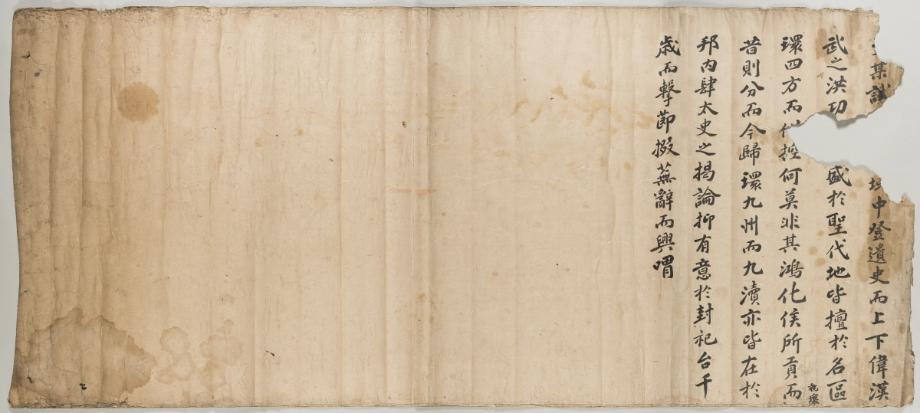 某議 垓中登遺史而上下偉漢
武之洪功 盛於聖代地皆擅於名區
環四方而 控何莫非其鴻化侯所貢而
昔則分而今歸環九州而九瀆亦皆在於
邦內肆太史之揭論抑有意於封祀台千
歲而擊節掇蕪辭而興喟